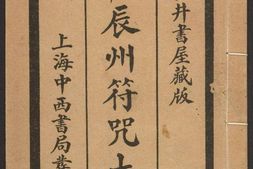 井書屋藏版
辰州符咒大
上海中西書局叢